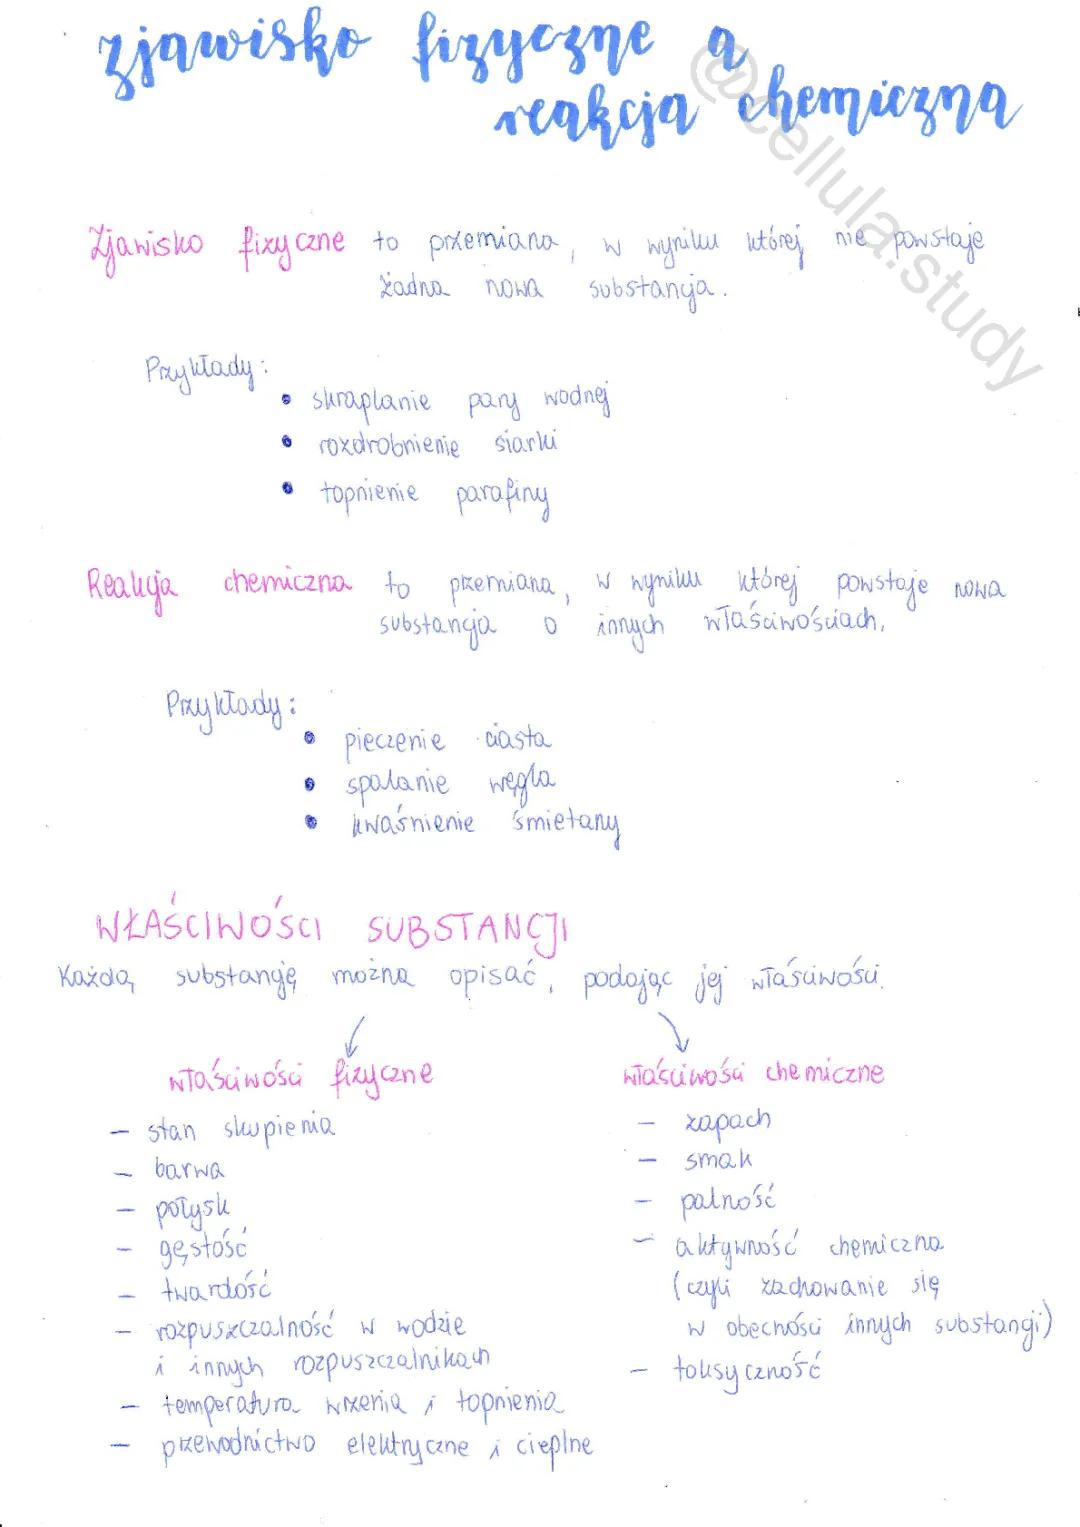 zjawisko fizyczne a
reakcja chemiczna
@cellula.study
Zjawisko fizyczne to przemiana, w wyniku której nie powstaje
żadna nowa substancja.
Przykłady:
• skraplanie pary wodnej
• rozdrobnienie siarki
• topnienie parafiny
Reakcja chemiczna to przemiana, w wyniku której powstaje nowa
substancja o innych właściwościach.
Przykłady:
• pieczenie ciasta
• spalanie węgla
• kwaśnienie śmietany
WŁAŚCIWOŚCI SUBSTANCJI
Każdą substancję można opisać, podając jej właściwości.
właściwości fizyczne
– stan skupienia
– barwa
– połysk
– gęstość
– twardość
– rozpuszczalność w wodzie
i innych rozpuszczalnikach
– temperatura wrzenia i topnienia
– przewodnictwo elektryczne i cieplne
właściwości chemiczne
– zapach
– smak
– palność
– aktywność chemiczna
(czyli zachowanie się
w obecności innych substancji)
– toksyczność